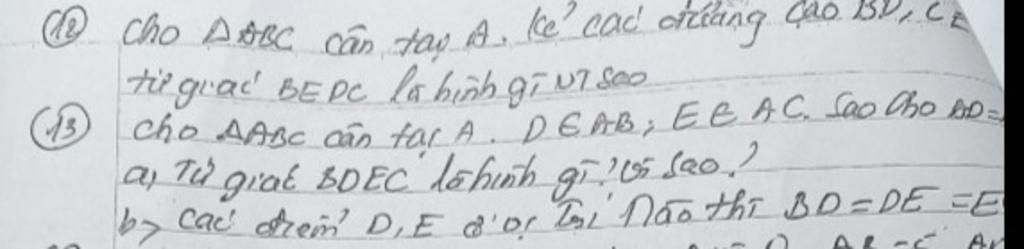 (12) Cho ΔABC cân tại A. Kẻ các đường cao BD, CE
tứ giác BEDC là hình gì vì sao
(13) Cho ΔABC cân tại A. D∈AB; E∈AC. Sao cho AD=
a, Tứ giác BDEC là hình gì? Vì sao?
b> Các điểm D, E ở vị trí nào thì BD=DE=E